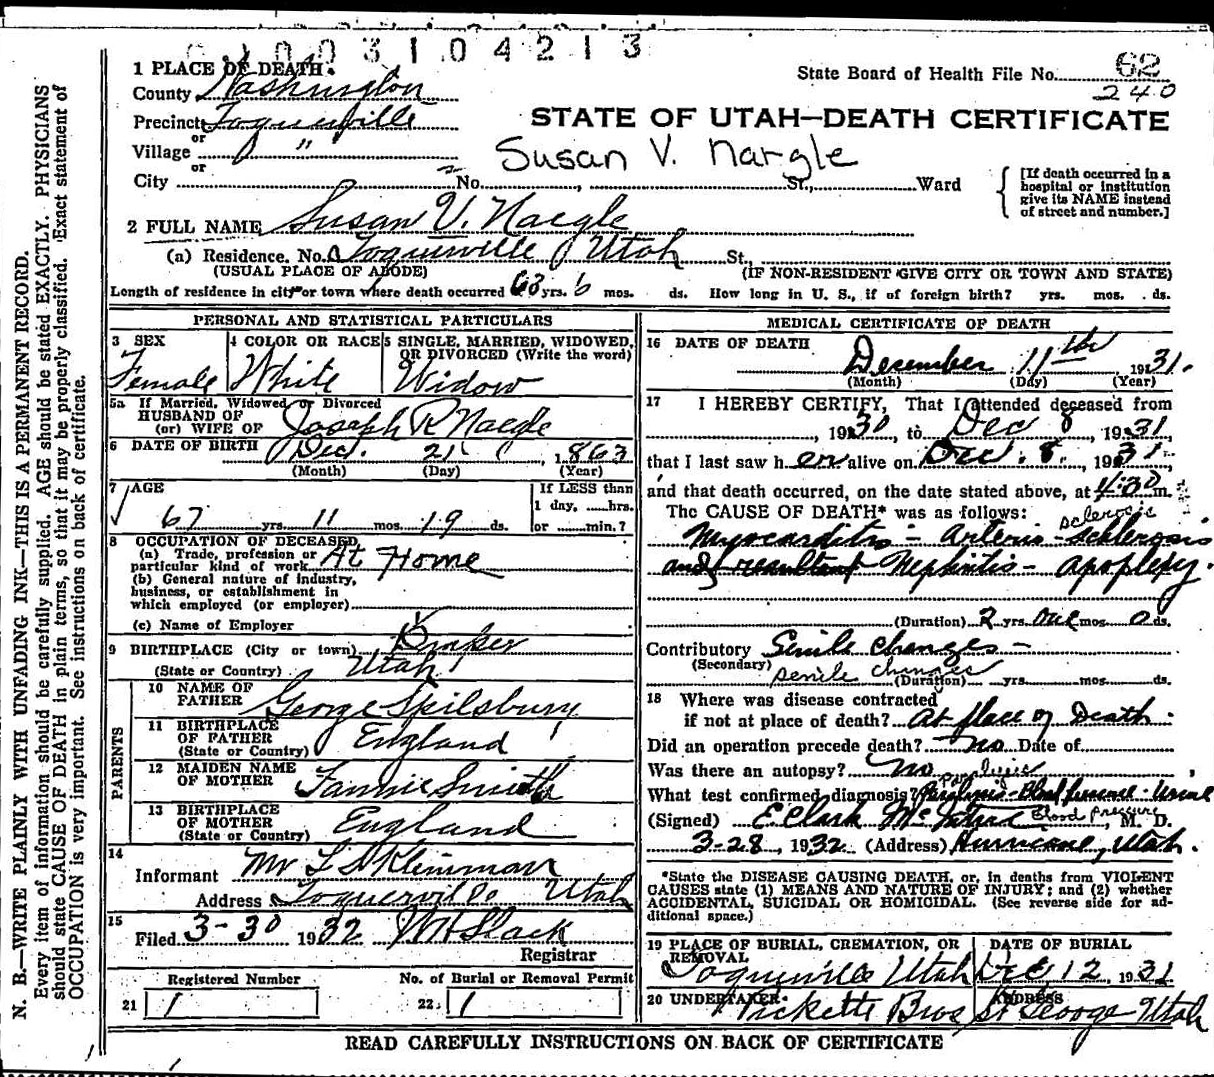 01003104213
State Board of Health File No. 62
240
1 PLACE OF DEATH.
County Washington
Precinct Toquerville
or
Village "
or
City No. , St., Ward
STATE OF UTAH—DEATH CERTIFICATE
Susan V. Nargle
[If death occurred in a
hospital or institution
give its NAME instead
of street and number.]
2 FULL NAME Susan V. Naegle
(a) Residence. No. Toquerville Utah St.,
(USUAL PLACE OF ABODE) (IF NON-RESIDENT GIVE CITY OR TOWN AND STATE)
Length of residence in city or town where death occurred 63 yrs. 6 mos. ds. How long in U. S., if of foreign birth? yrs. mos. ds.
PERSONAL AND STATISTICAL PARTICULARS
3 SEX 4 COLOR OR RACE 5 SINGLE, MARRIED, WIDOWED,
OR DIVORCED (Write the word)
Female White Widow
5a If Married, Widowed or Divorced
HUSBAND OF
(or) WIFE OF Joseph R Naegle
6 DATE OF BIRTH Dec. 21 1863
(Month) (Day) (Year)
7 AGE If LESS than
1 day, hrs.
67 yrs. 11 mos. 19 ds. or min.?
8 OCCUPATION OF DECEASED
(a) Trade, profession or
particular kind of work At Home
(b) General nature of industry,
business, or establishment in
which employed (or employer)
(c) Name of Employer
9 BIRTHPLACE (City or town) Draper
(State or Country) Utah
PARENTS
10 NAME OF
FATHER George Spilsbury
11 BIRTHPLACE
OF FATHER England
(State or Country)
12 MAIDEN NAME
OF MOTHER Fannie Smith
13 BIRTHPLACE
OF MOTHER England
(State or Country)
14
Informant Mr L A Kleinman
Address Toquerville Utah
15
Filed 3-30 1932 W H Slack
Registrar
Registered Number No. of Burial or Removal Permit
21 1 22 1
MEDICAL CERTIFICATE OF DEATH
16 DATE OF DEATH
December 11th 1931.
(Month) (Day) (Year)
17 I HEREBY CERTIFY, That I attended deceased from
, 1930, to Dec 8, 1931,
that I last saw her alive on Dec. 8, 1931,
and that death occurred, on the date stated above, at 4:30 m.
The CAUSE OF DEATH* was as follows:
sclerosis
Myocarditis - Arterio-schlerosis
and resultant Nephritis - Apoplexy.
(Duration) 2 yrs. one mos. 0 ds.
Contributory Senile Changes -
(Secondary) senile changes
(Duration) yrs. mos. ds.
18 Where was disease contracted
if not at place of death? At place of Death.
Did an operation precede death? no Date of
Was there an autopsy? No
paralysis
What test confirmed diagnosis? Paralysis - Blood pressure - Urine
Blood pressure
(Signed) E Clark McIntire, M. D.
3-28, 1932 (Address) Hurricane, Utah.
*State the DISEASE CAUSING DEATH, or, in deaths from VIOLENT
CAUSES state (1) MEANS AND NATURE OF INJURY; and (2) whether
ACCIDENTAL, SUICIDAL OR HOMICIDAL. (See reverse side for ad-
ditional space.)
19 PLACE OF BURIAL, CREMATION, OR DATE OF BURIAL
REMOVAL
Toquerville Utah Dec 12, 1931
20 UNDERTAKER ADDRESS
Picketts Bros St George Utah
READ CAREFULLY INSTRUCTIONS ON BACK OF CERTIFICATE
N. B.—WRITE PLAINLY WITH UNFADING INK—THIS IS A PERMANENT RECORD.
Every item of information should be carefully supplied. AGE should be stated EXACTLY. PHYSICIANS
should state CAUSE OF DEATH in plain terms, so that it may be properly classified. Exact statement of
OCCUPATION is very important. See instructions on back of certificate.